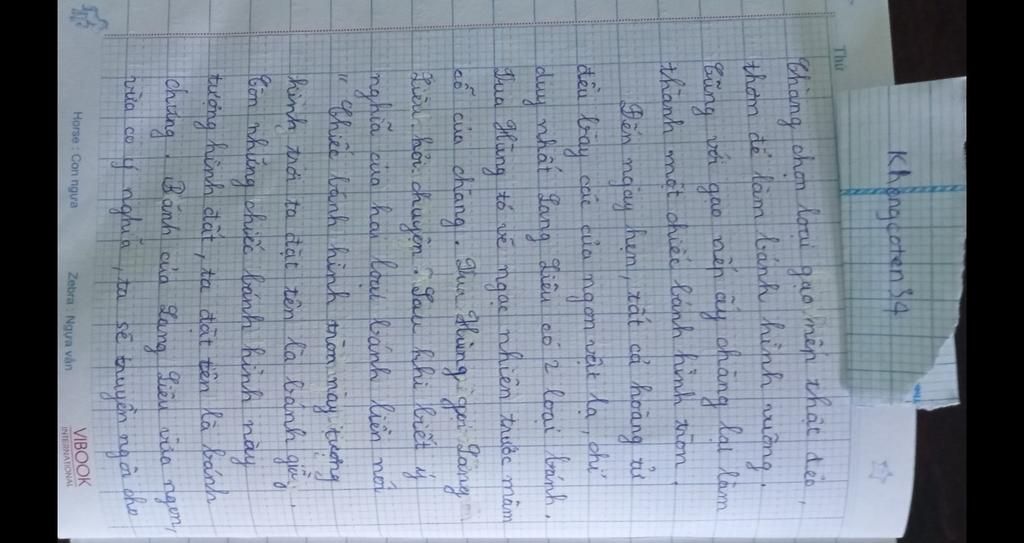 Thứ
Khôngcoten34
Chàng chọn loại gạo nếp thật dẻo,
thơm để làm bánh hình vuông.
Cũng với gạo nếp ấy chàng lại làm
thành một chiếc bánh hình tròn.
Đến ngày hẹn, tất cả hoàng tử
đều bày các của ngon vật lạ, chỉ
duy nhất Lang Liêu có 2 loại bánh.
Vua Hùng tỏ vẻ ngạc nhiên trước mâm
cỗ của chàng. Vua Hùng gọi Lang
Liêu hỏi chuyện. Sau khi biết ý
nghĩa của hai loại bánh liền nói
"Chiếc bánh hình tròn này tượng
hình trời ta đặt tên là bánh giầy,
Còn những chiếc bánh hình này
tượng hình đất, ta đặt tên là bánh
chưng. Bánh của Lang Liêu vừa ngon,
vừa có ý nghĩa, ta sẽ truyền ngôi cho
Horse : Con ngựa
Zebra : Ngựa vằn
VIBOOK
INTERNATIONAL